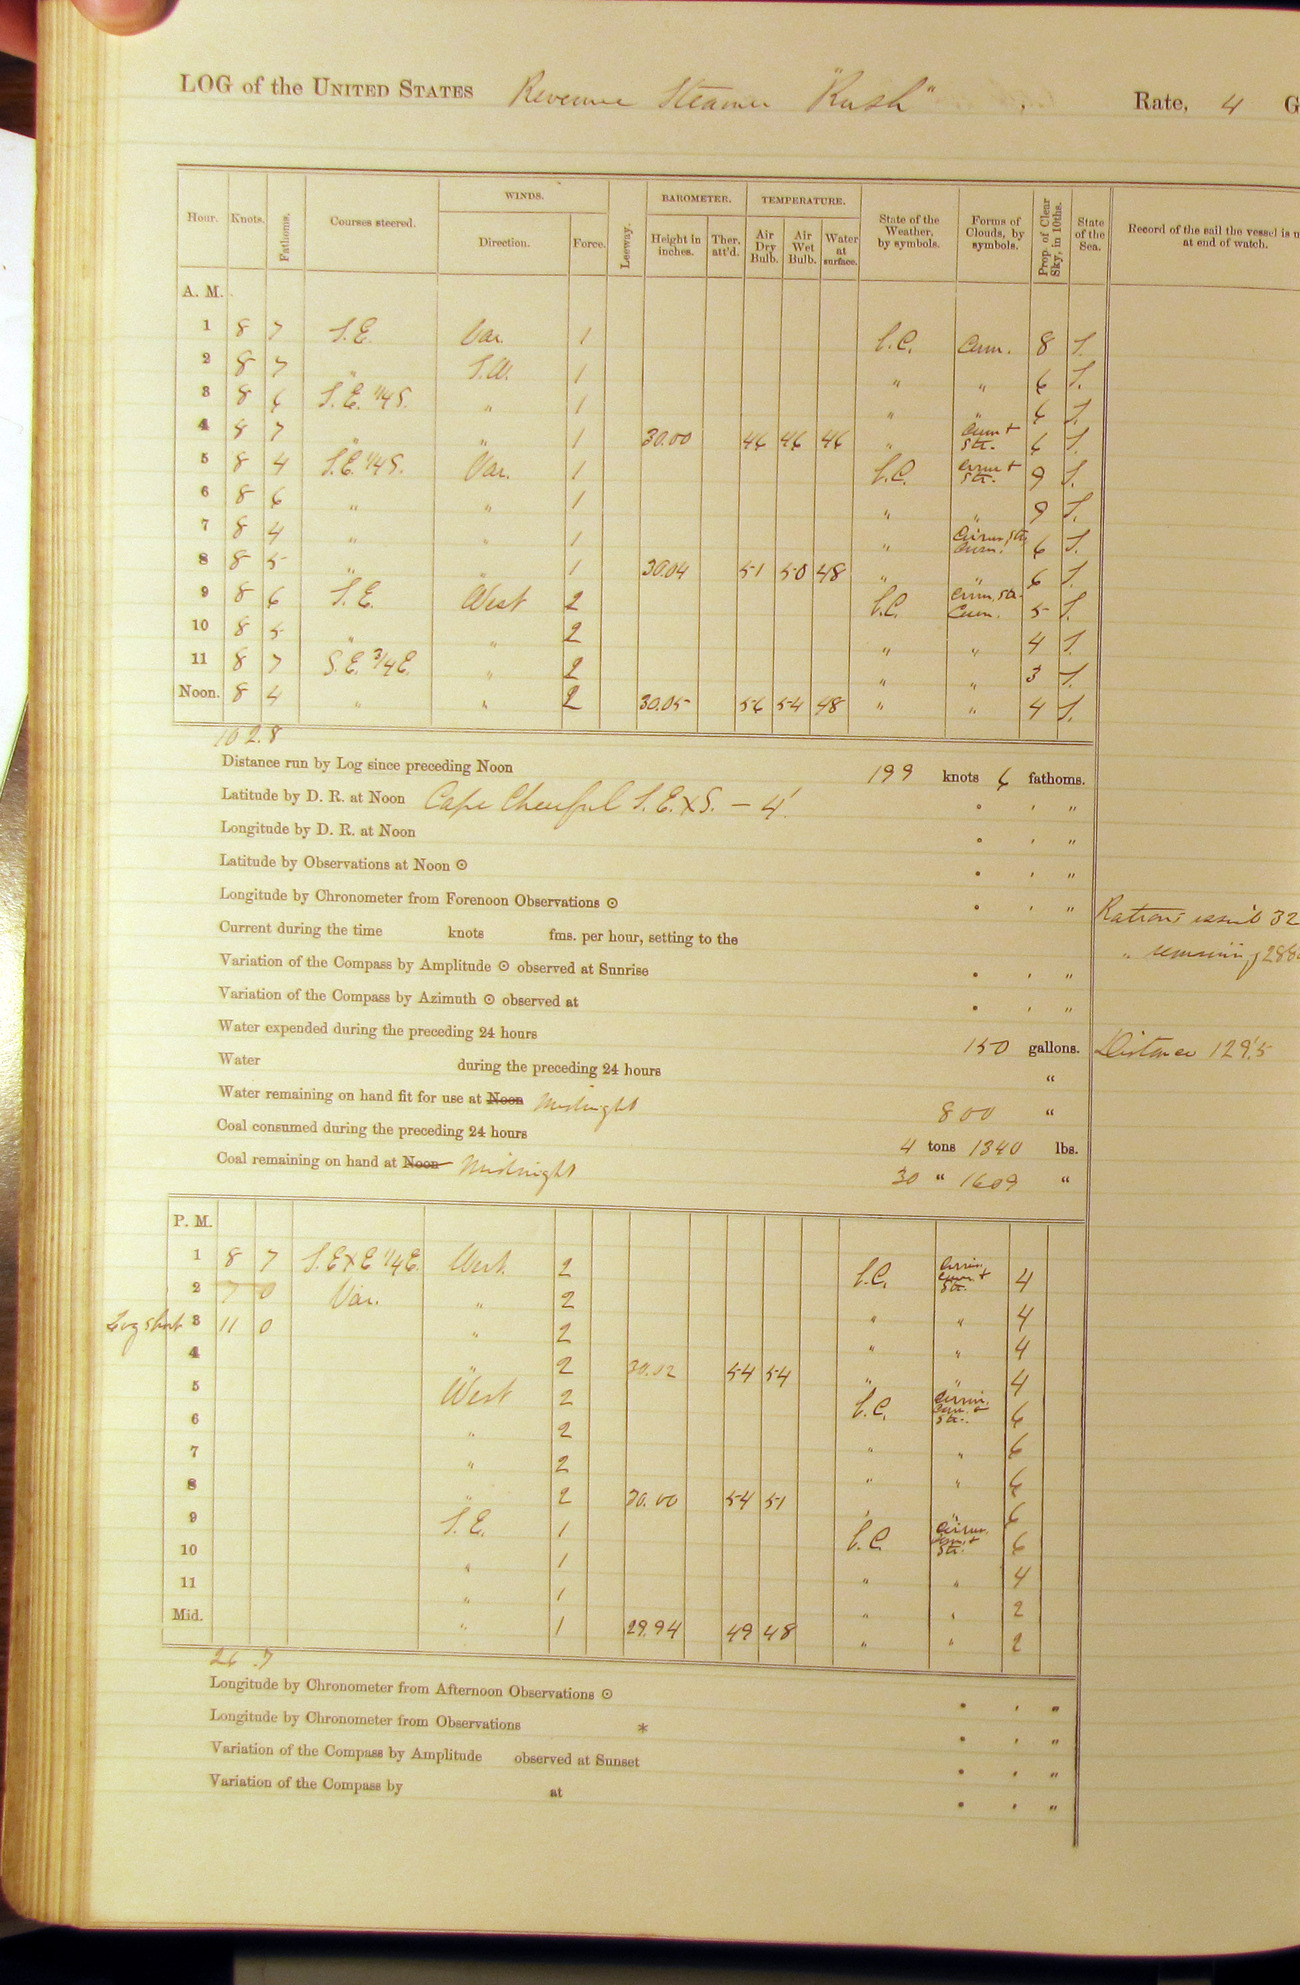 LOG of the UNITED STATES Revenue Steamer "Rush", Rate, 4 G
Hour. Knots. Fathoms. Courses steered. WINDS. Direction. Force. Leeway. BAROMETER. Height in inches. Ther. att'd. TEMPERATURE. Air Dry Bulb. Air Wet Bulb. Water at surface. State of the Weather, by symbols. Forms of Clouds, by symbols. Prop. of Clear Sky, in 10ths. State of the Sea. Record of the sail the vessel is u at end of watch.
A. M.
1 8 7 S.E. Var. 1 b.c. Cum. 8 S.
2 8 7 " S.W. 1 " " 6 S.
3 8 6 S.E. 1/4 S. " 1 " " 6 S.
4 8 7 " " 1 30.00 46 46 46 " Cum + Str. 6 S.
5 8 4 S.E. 1/4 S. Var. 1 b.c. Cirrus + Str. 9 S.
6 8 6 " " 1 " " 9 S.
7 8 4 " " 1 " Cirrus, Str, Cum. 6 S.
8 8 5 " " 1 30.04 51 50 48 " " 6 S.
9 8 6 S.E. West 2 b.c. Cirrus, Str. Cum. 5 S.
10 8 5 " " 2 " " 4 S.
11 8 7 S.E. 3/4 E. " 2 " " 3 S.
Noon. 8 4 " " 2 30.05 56 54 48 " " 4 S.
102.8
Distance run by Log since preceding Noon 199 knots 6 fathoms.
Latitude by D. R. at Noon Cape Cheerful S.E.xS. – 4'. ° ' "
Longitude by D. R. at Noon ° ' "
Latitude by Observations at Noon ⊙ ° ' "
Longitude by Chronometer from Forenoon Observations ⊙ ° ' " Rations issu'd 32
Current during the time knots fms. per hour, setting to the " remaining 288
Variation of the Compass by Amplitude ⊙ observed at Sunrise ° ' "
Variation of the Compass by Azimuth ⊙ observed at ° ' "
Water expended during the preceding 24 hours 150 gallons. Distance 129.5
Water during the preceding 24 hours "
Water remaining on hand fit for use at Noon Midnight 800 "
Coal consumed during the preceding 24 hours 4 tons 1340 lbs.
Coal remaining on hand at Noon Midnight 30 " 1609 "
P. M.
1 8 7 S.ExE 1/4 E. West. 2 b.c. Cirrus, Cum. + Str. 4
2 7 0 Var. " 2 " " 4
Log short 3 11 0 " 2 " " 4
4 " 2 30.02 54 54 " " 4
5 West 2 b.c. Cirrus. Cum. + Str. 6
6 " 2 " " 6
7 " 2 " " 6
8 " 2 30.00 54 51 " " 6
9 S.E. 1 b.c. Cirrus. Cum. + Str. 6
10 " 1 " " 4
11 " 1 " " 2
Mid. " 1 29.94 49 48 " " 2
26.7
Longitude by Chronometer from Afternoon Observations ⊙ ° ' "
Longitude by Chronometer from Observations * ° ' "
Variation of the Compass by Amplitude observed at Sunset ° ' "
Variation of the Compass by at ° ' "